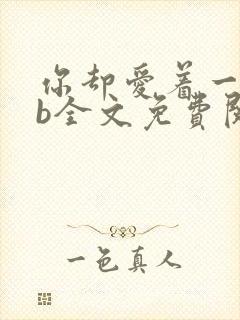 你却愛着一
b全文免費閱
一色真人